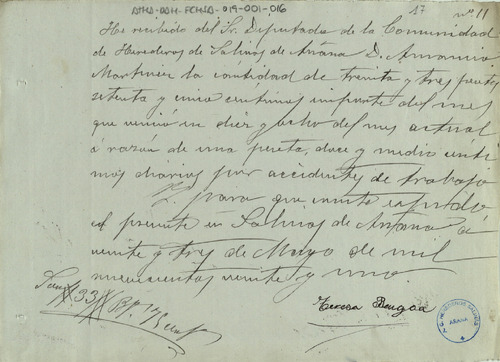 ATHA-DAH-FCHSA-019-001-016
17
nº 11
He recibido del Sr. Diputado de la Comunidad
de Herederos de Salinas de Añana D. Antonio
Martinez la cantidad de treinta y tres pesetas
setenta y cinco centimos importe del mes
que venció en diez y ocho del mes actual
á razón de una peseta, doce y medio centi
mos diarios por accidentes de trabajo
Y para que conste expido
el presente en Salinas de Añana á
veinte y tres de Mayo de mil
novecientos veinte y uno.
Son 33
Teresa Angoa
AÑANA